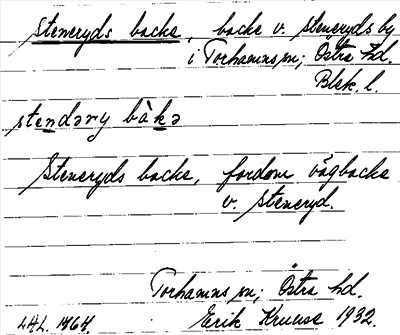 steneryds backe, backe v. steneryds by
i Torhamns sn; Östra hd.
Blek. l.
stendəry bàkə
Steneryds backe, fordom vägbacke
v. Steneryd.
Torhamns sn; Östra hd.
LAL. 1464. Erik Kruuse 1932.